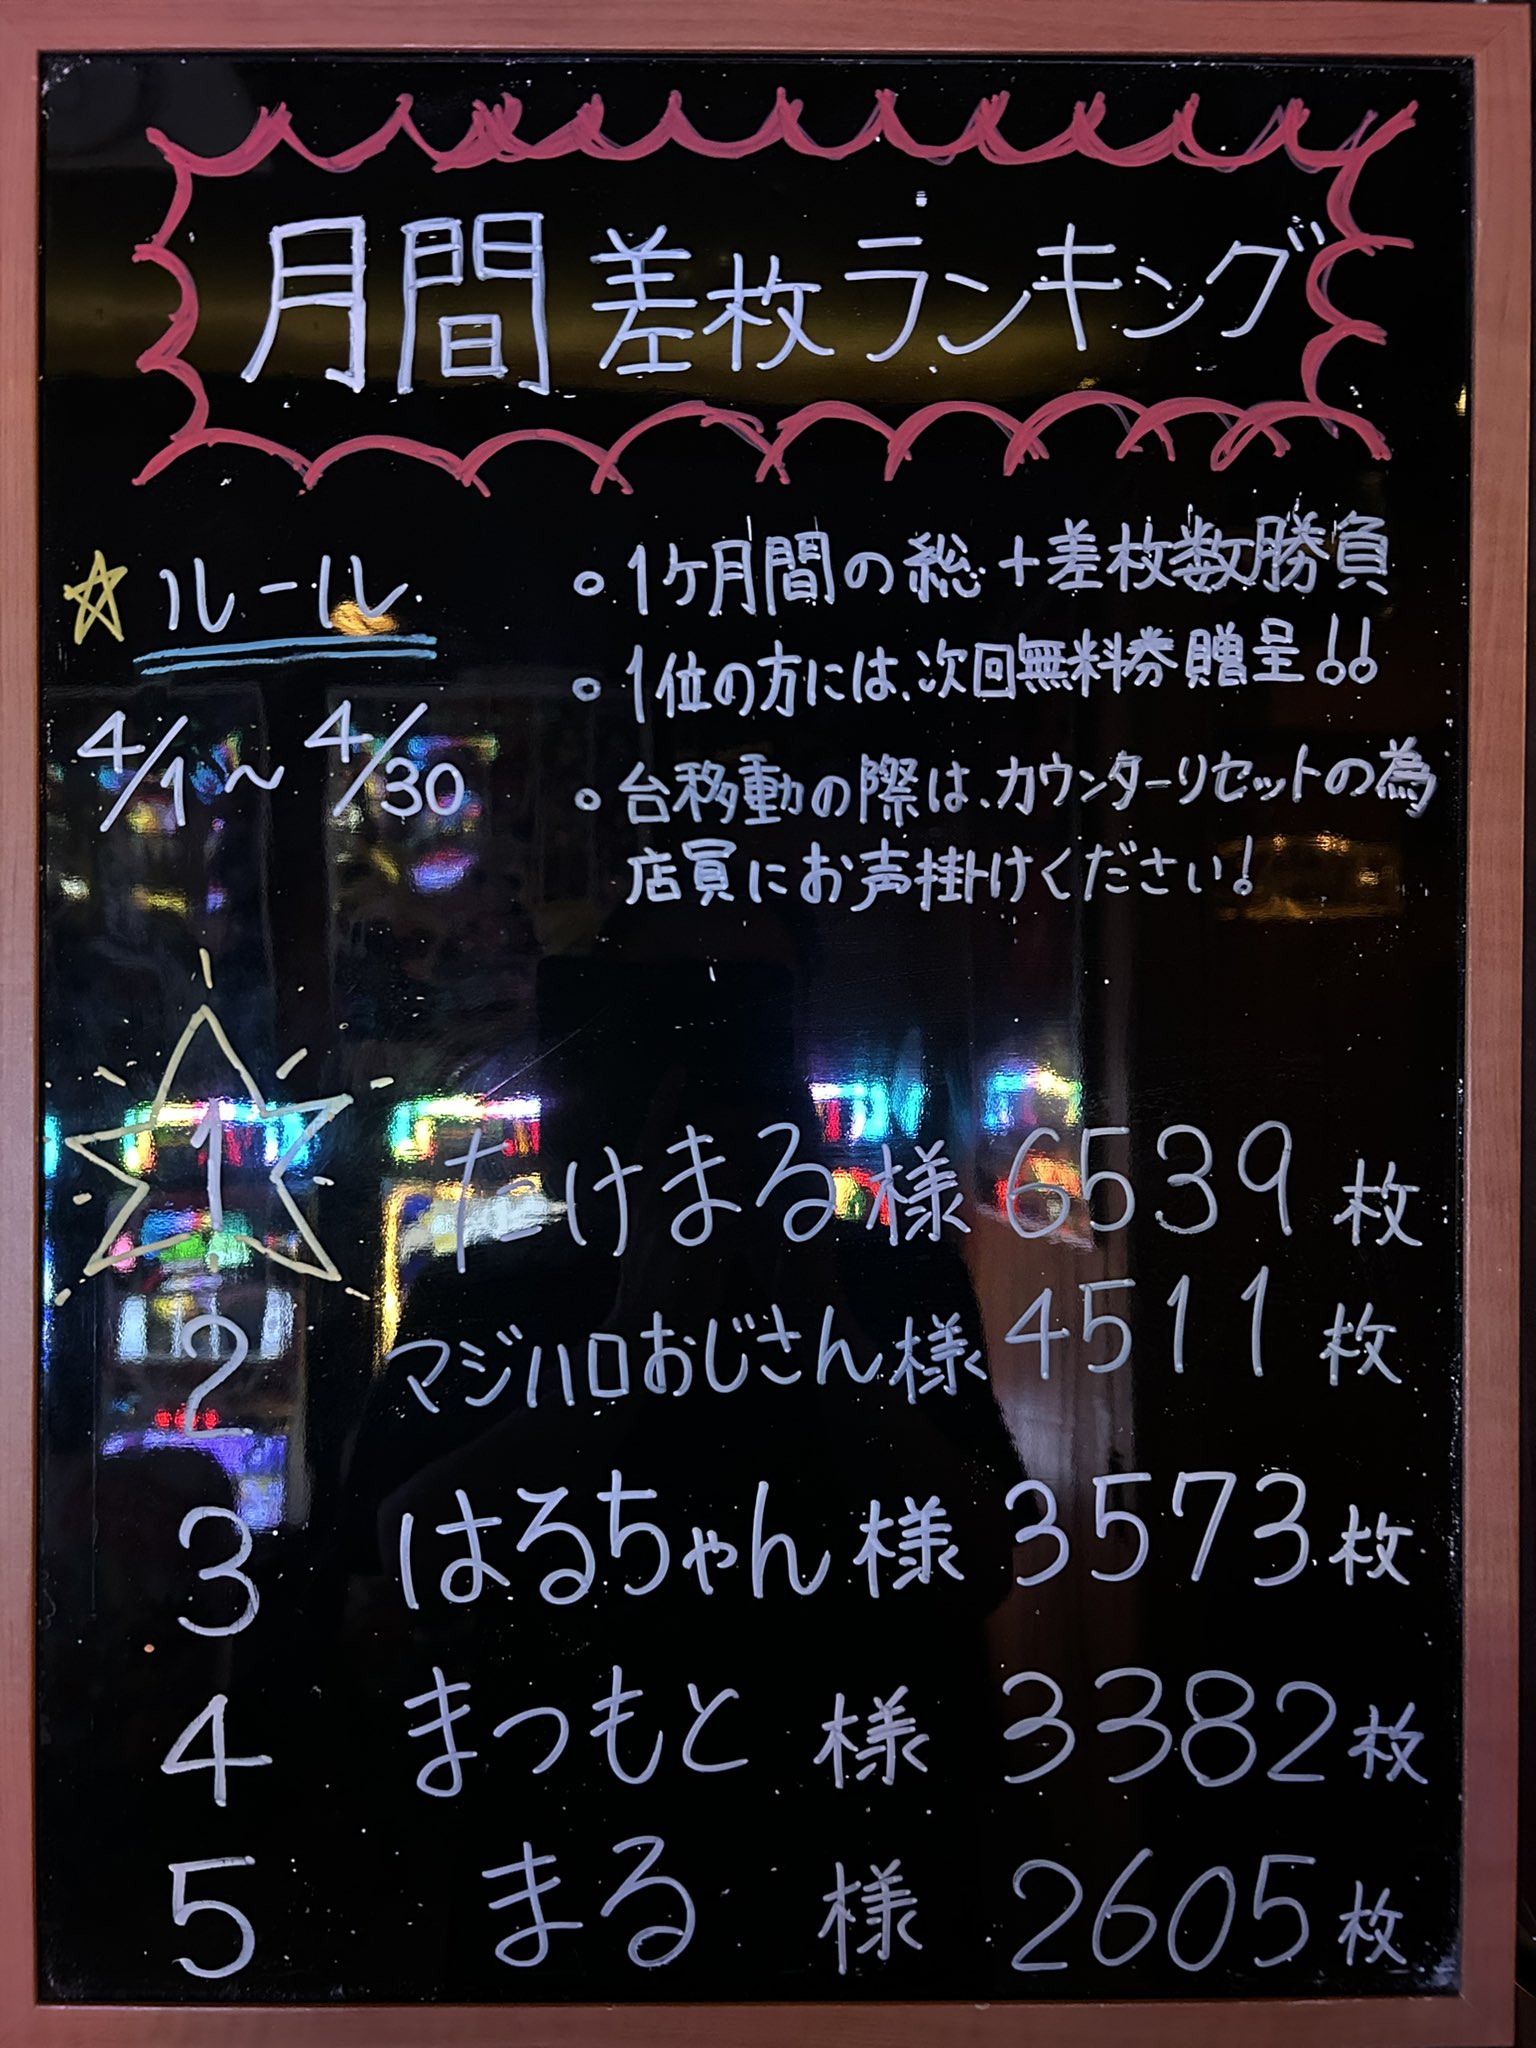 月間差枚ランキング
☆ ルール
4/1~4/30
○1ケ月間の総+差枚数勝負
○1位の方には、次回無料券贈呈!!
○台移動の際は、カウンターリセットの為
店員にお声掛けください!
1 たけまる様 6539枚
2 マジハロおじさん様 4511枚
3 はるちゃん様 3573枚
4 まつもと様 3382枚
5 まる様 2605枚